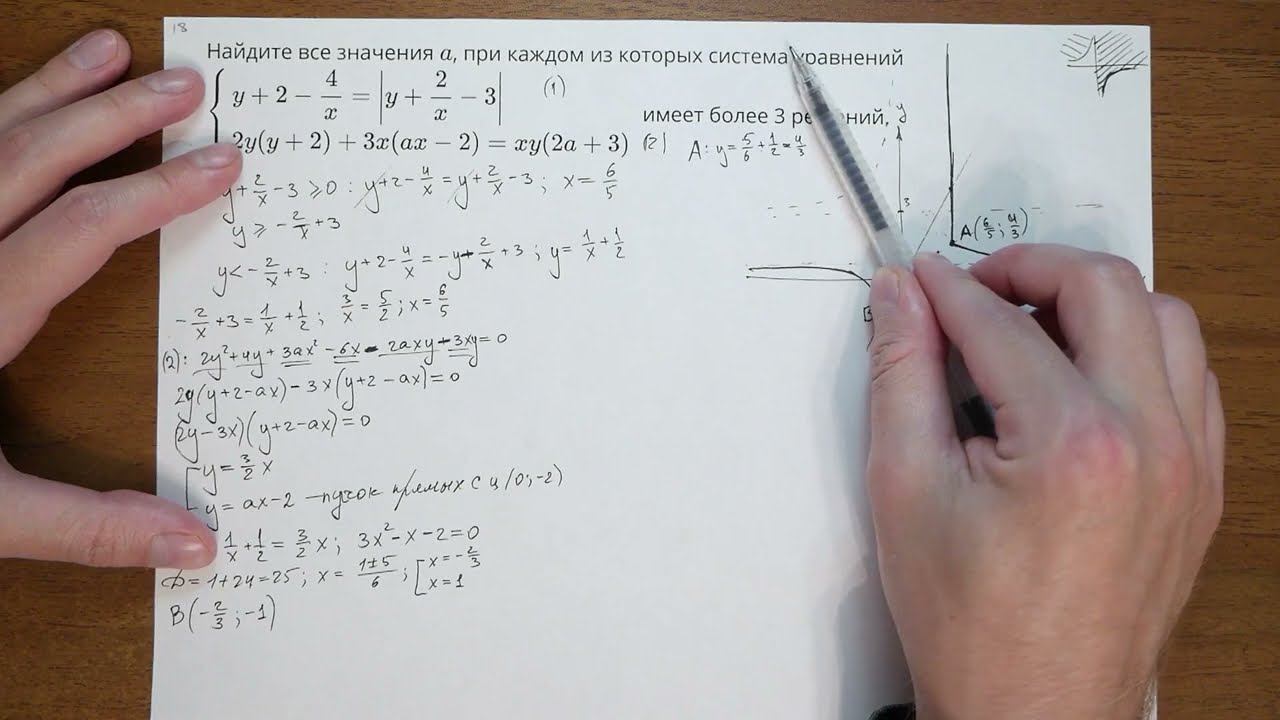 18
Найдите все значения a, при каждом из которых система уравнений
y + 2 − 4/x = |y + 2/x − 3| (1)
имеет более 3 решений,
2y(y + 2) + 3x(ax − 2) = xy(2a + 3) (2)
A: y = 5/6 + 1/2 = 4/3
y
y + 2/x − 3 ⩾ 0 : y + 2 − 4/x = y + 2/x − 3 ; x = 6/5
y ⩾ − 2/x + 3
3
A(6/5 ; 4/3)
y < − 2/x + 3 : y + 2 − 4/x = −y − 2/x + 3 ; y = 1/x + 1/2
− 2/x + 3 = 1/x + 1/2 ; 3/x = 5/2 ; x = 6/5
B
(2): 2y² + 4y + 3ax² − 6x − 2axy − 3xy = 0
2y(y + 2 − ax) − 3x(y + 2 − ax) = 0
(2y − 3x)(y + 2 − ax) = 0
y = 3/2 x
y = ax − 2 – пучок прямых с ц (0; −2)
1/x + 1/2 = 3/2 x ; 3x² − x − 2 = 0
D = 1 + 24 = 25 ; x = 1±5/6 ; [ x = − 2/3
x = 1
B(− 2/3 ; −1)